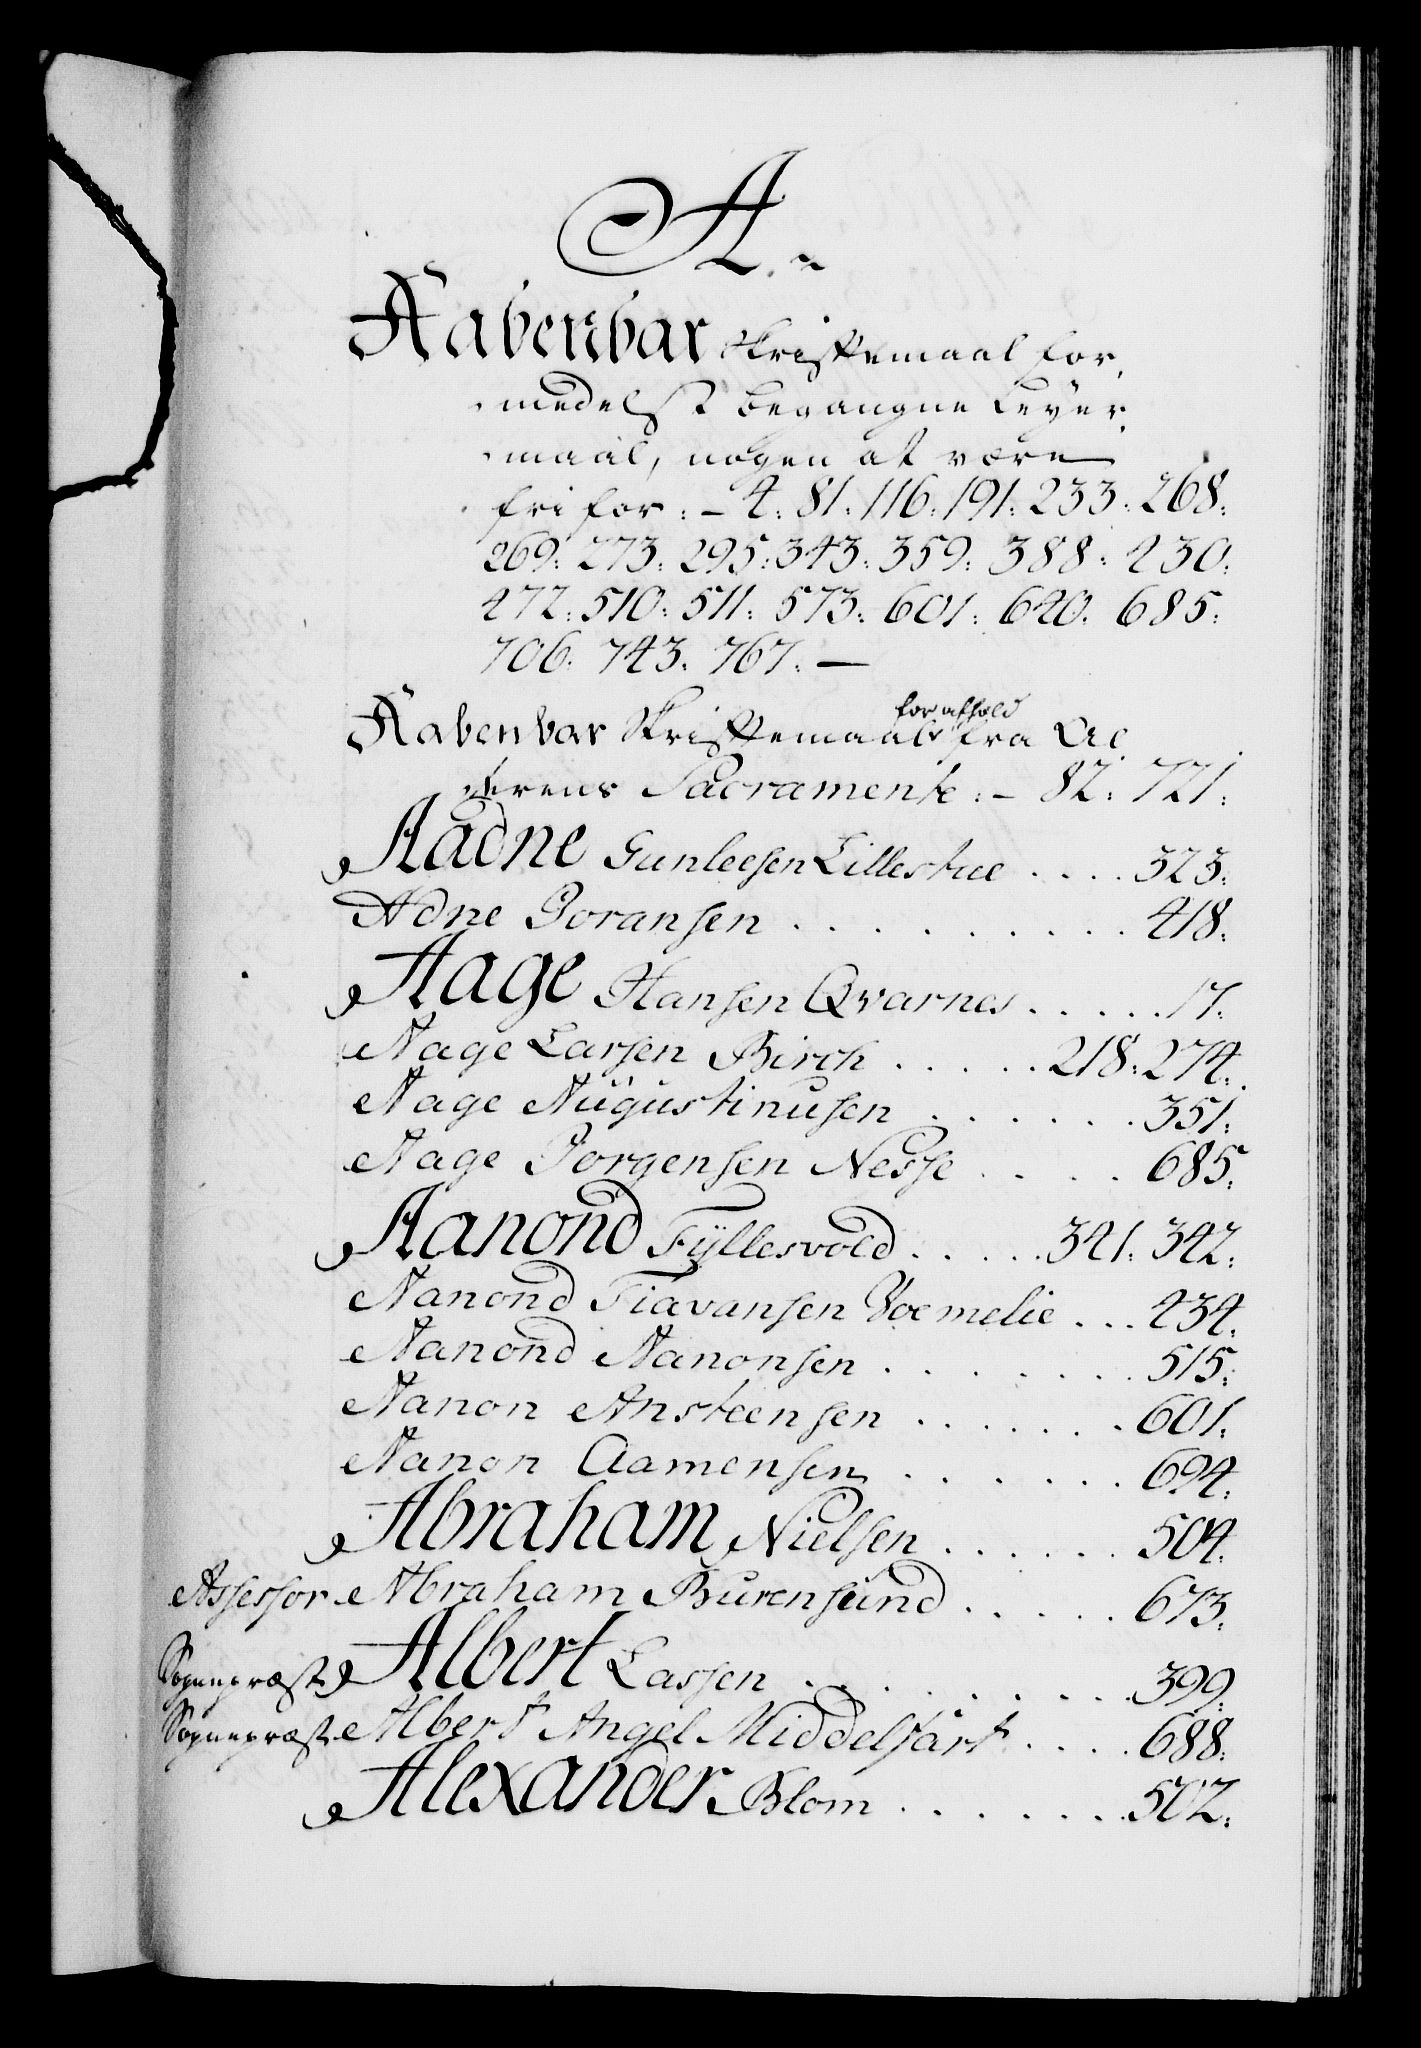 A.
Aabenbar Skriftemaal for,
medelst begangne Leyer,
maal, nogen at være
fri for: – 4: 81: 116: 191: 233: 268:
269: 273: 295: 343: 359: 388: 430:
472: 510: 511: 573: 601: 640: 685:
706: 743: 767: –
for afhold
Aabenbar Skriftemaal fra Al
terens Sacramente: – 82: 721:
Aadne Gunlecsen Lillestue .... 323:
Adne Joransen .......... 418:
Aage Hansen Qvarnes ..... 17:
Aage Larsen Birch ..... 218: 274:
Aage Augustinusen ....... 351:
Aage Jorgensen Nesse .... 685:
Aanond Fyllesvold ..... 341: 342:
Aanond Tiavansen Voemelie ... 434:
Aanond Aanonsen ....... 515:
Aanon Ansteensen ....... 601:
Aanon Aamensen ....... 694:
Abraham Nielsen ...... 504:
Assessor Abraham Burensund ..... 673:
Sognepræst Albert Lassen ......... 399:
Sognepræst Albert Angel Middelfart .... 688:
Alexander Blom ....... 502: